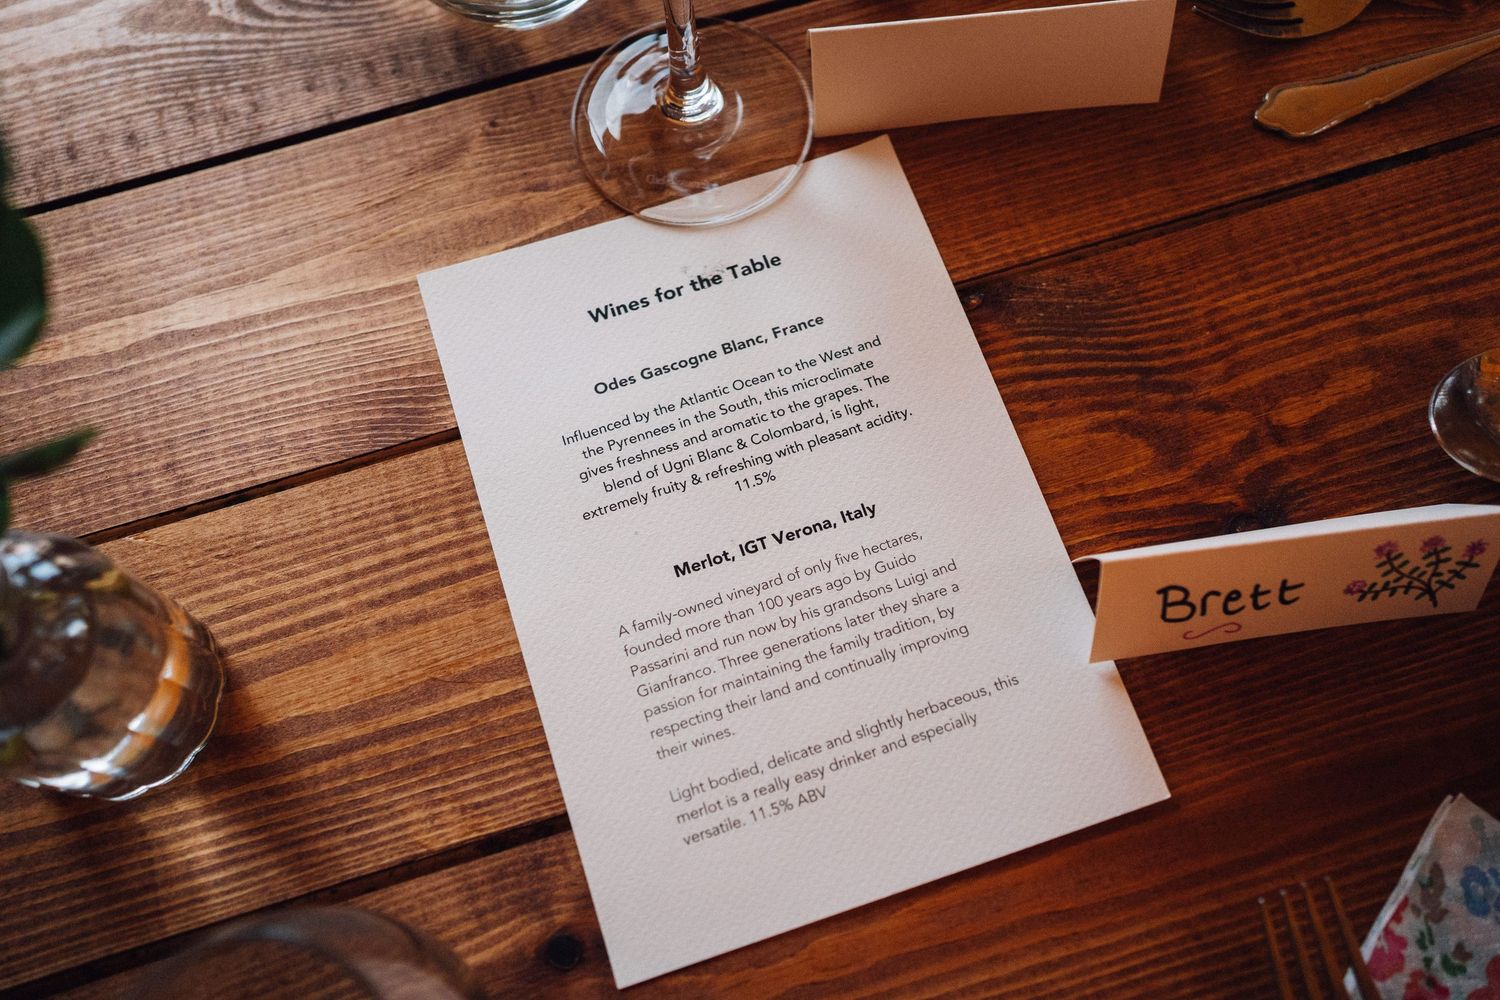 Wines for the Table
Odes Gascogne Blanc, France
Influenced by the Atlantic Ocean to the West and
the Pyrennees in the South, this microclimate
gives freshness and aromatic to the grapes. The
blend of Ugni Blanc & Colombard, is light,
extremely fruity & refreshing with pleasant acidity.
11.5%
Merlot, IGT Verona, Italy
A family-owned vineyard of only five hectares,
founded more than 100 years ago by Guido
Passarini and run now by his grandsons Luigi and
Gianfranco. Three generations later they share a
passion for maintaining the family tradition, by
respecting their land and continually improving
their wines.
Light bodied, delicate and slightly herbaceous, this
merlot is a really easy drinker and especially
versatile. 11.5% ABV
Brett